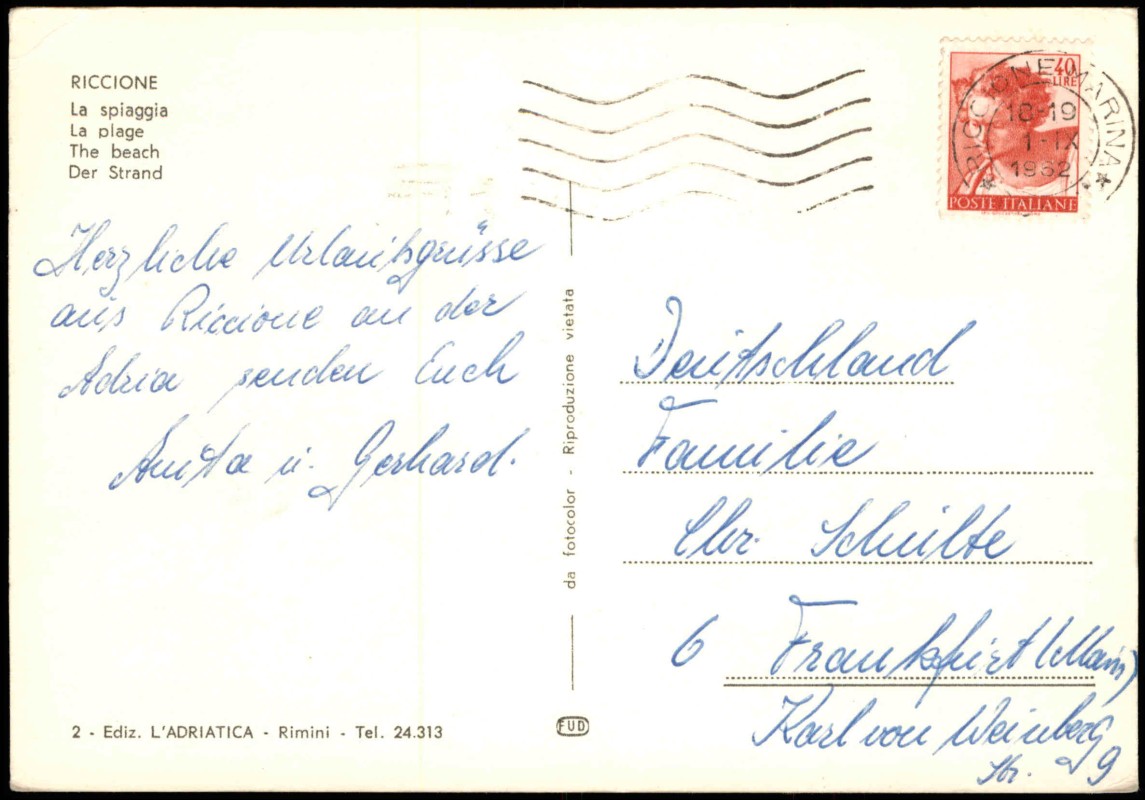 RICCIONE
La spiaggia
La plage
The beach
Der Strand
Herzliche Urlaubsgrüsse
aus Riccione an der
Adria senden Euch
Anita u. Gerhard.
2 - Ediz. L'ADRIATICA - Rimini - Tel. 24.313
da fotocolor - Riproduzione vietata
FUD
40
LIRE
POSTE ITALIANE
RICCIONE MARINA
18-19
1-IX
1962
Deutschland
Familie
Chr. Schulte
6 Frankfurt (Main)
Karl von Weinberg
Str. 9